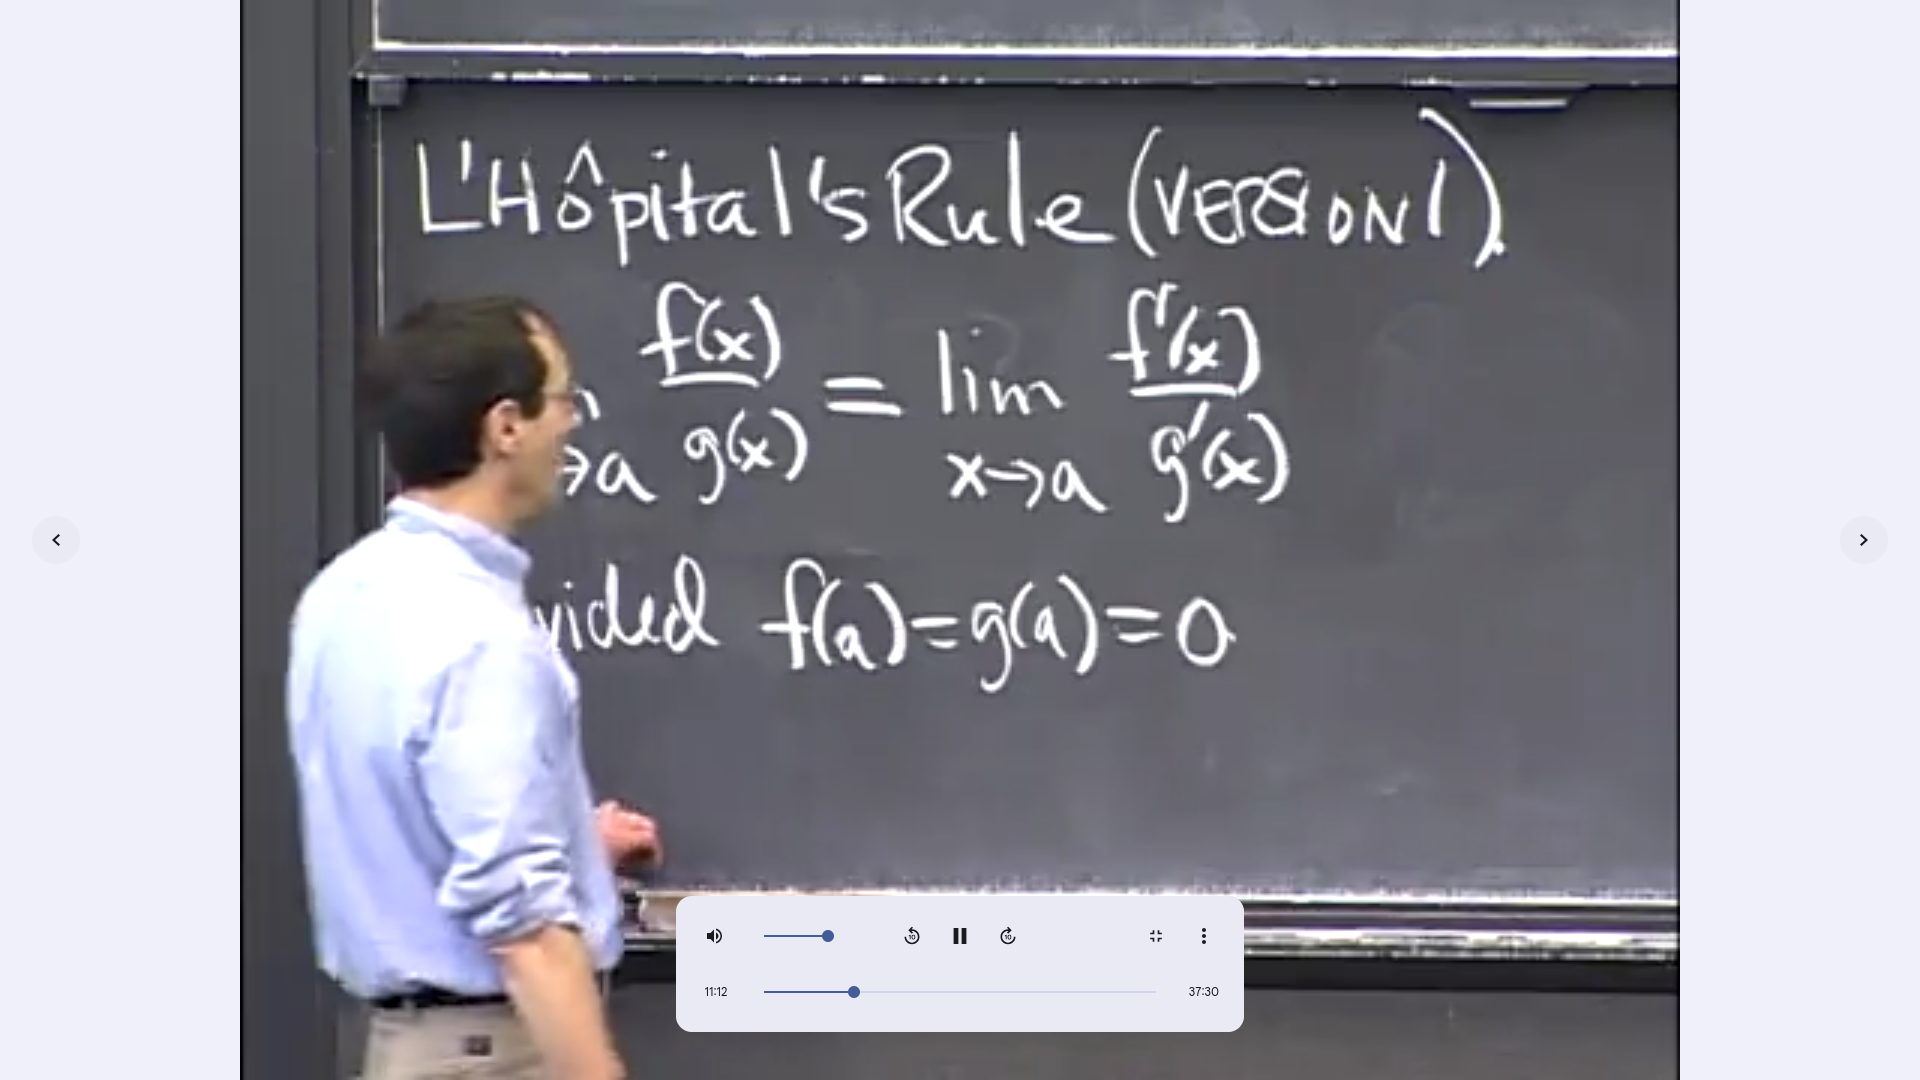 L'Hôpital's Rule (VERSION 1)
f(x) / g(x) = lim x→a f'(x) / g'(x)
→a
f(a) = g(a) = 0
11:12
37:30